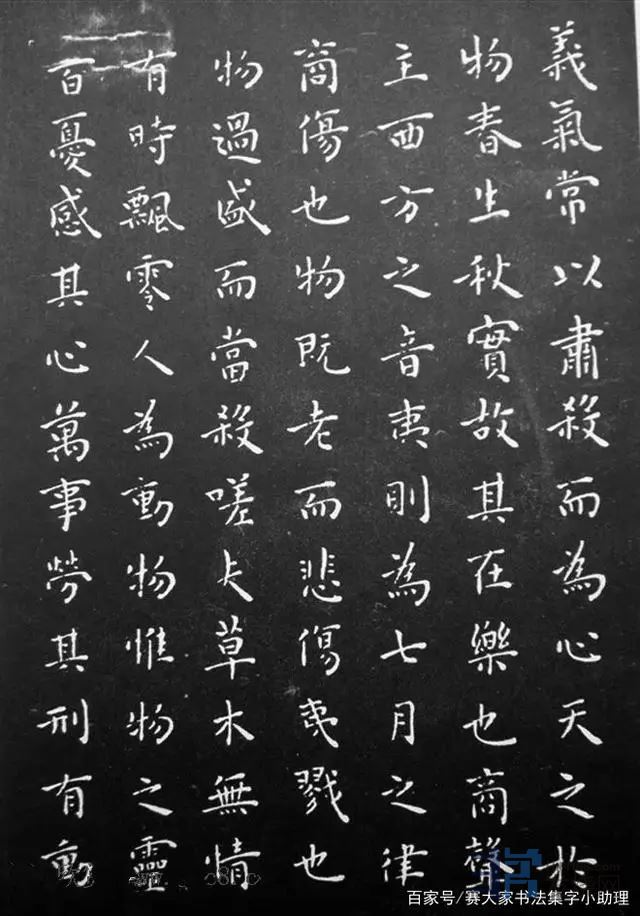 義氣常以肅殺而為心天之於
物春生秋實故其在樂也商聲
主西方之音夷則為七月之律
商傷也物既老而悲傷夷戮也
物過盛而當殺嗟夫草木無情
有時飄零人為動物惟物之靈
百憂感其心萬事勞其刑有動
百家号/赛大家书法集字小助理